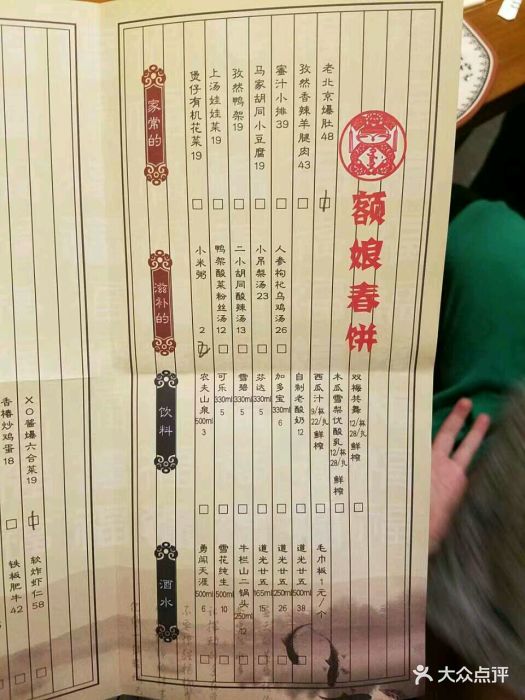 额娘春饼
家常的
老北京爆肚48
孜然香辣羊腿肉43
蜜汁小排39
马家胡同小豆腐19
孜然鸭架19
上汤娃娃菜19
煲仔有机花菜19
滋补的
人参枸杞乌鸡汤26
小吊梨汤23
二小胡同酸辣汤13
鸭架酸菜粉丝汤12
小米粥2
饮料
双梅共舞12/杯28/扎鲜榨
木瓜雪梨优酸乳12/杯28/扎鲜榨
西瓜汁9/杯22/扎鲜榨
自制老酸奶12
加多宝330ml6
芬达330ml5
雪碧330ml5
可乐330ml5
农夫山泉500ml3
酒水
毛巾板1元/个
道光廿五500ml38
道光廿五250ml26
道光廿五165ml15
牛栏山二锅头250ml12
雪花纯生500ml10
勇闯天涯500ml6
XO酱爆六合菜19
香椿炒鸡蛋18
软炸虾仁58
铁板肥牛42
大众点评